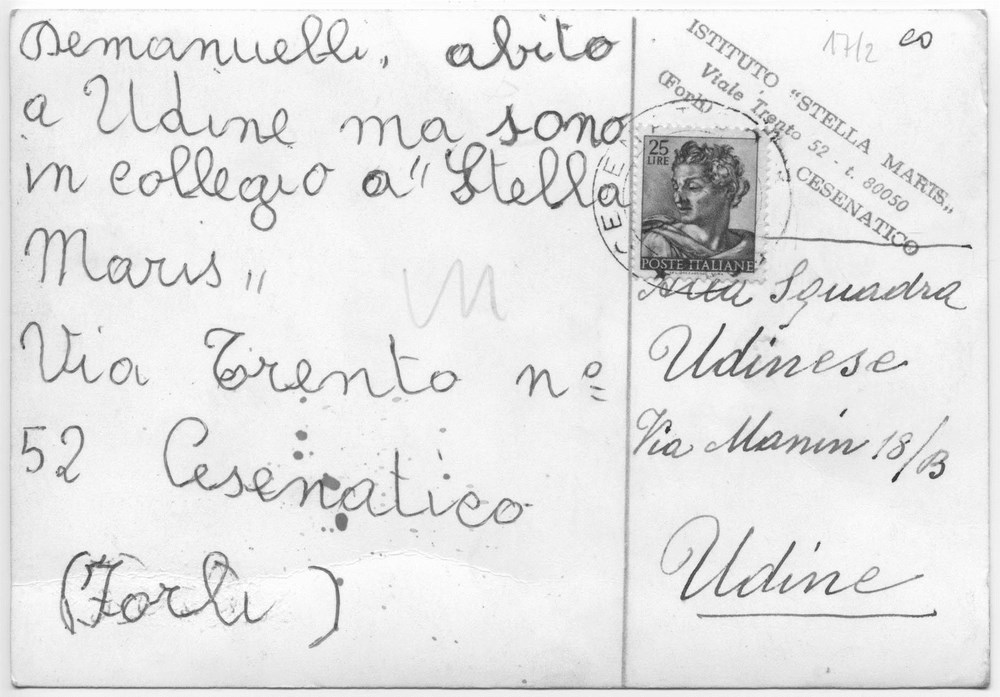 Demanuelli, abito
a Udine ma sono
in collegio a "Stella
Maris"
Via Trento nº
52 Cesenatico
(Forlì)
17/2
ISTITUTO "STELLA MARIS"
Viale Trento 52 - t. 80050
(Forlì) CESENATICO
25
LIRE
POSTE ITALIANE
Alla Squadra
Udinese
Via Manin 18/B
Udine